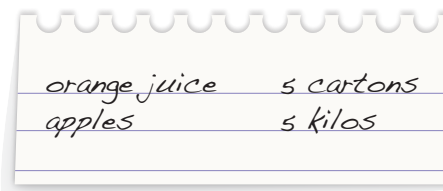 orange juice 5 cartons
apples 5 kilos